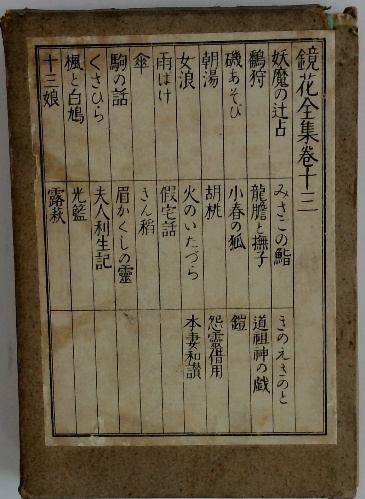 鏡花全集卷十三
妖魔の辻占
鷭狩
磯あそび
朝湯
女浪
雨ばけ
傘
駒の話
くさびら
楓と白鳩
十三娘
みさごの鮨
龍膽と撫子
小春の狐
胡桃
火のいたづら
假宅話
きん稻
眉かくしの靈
夫人利生記
光籃
露萩
きのえきのと
道祖神の戲
鎧
怨靈借用
本妻和讃